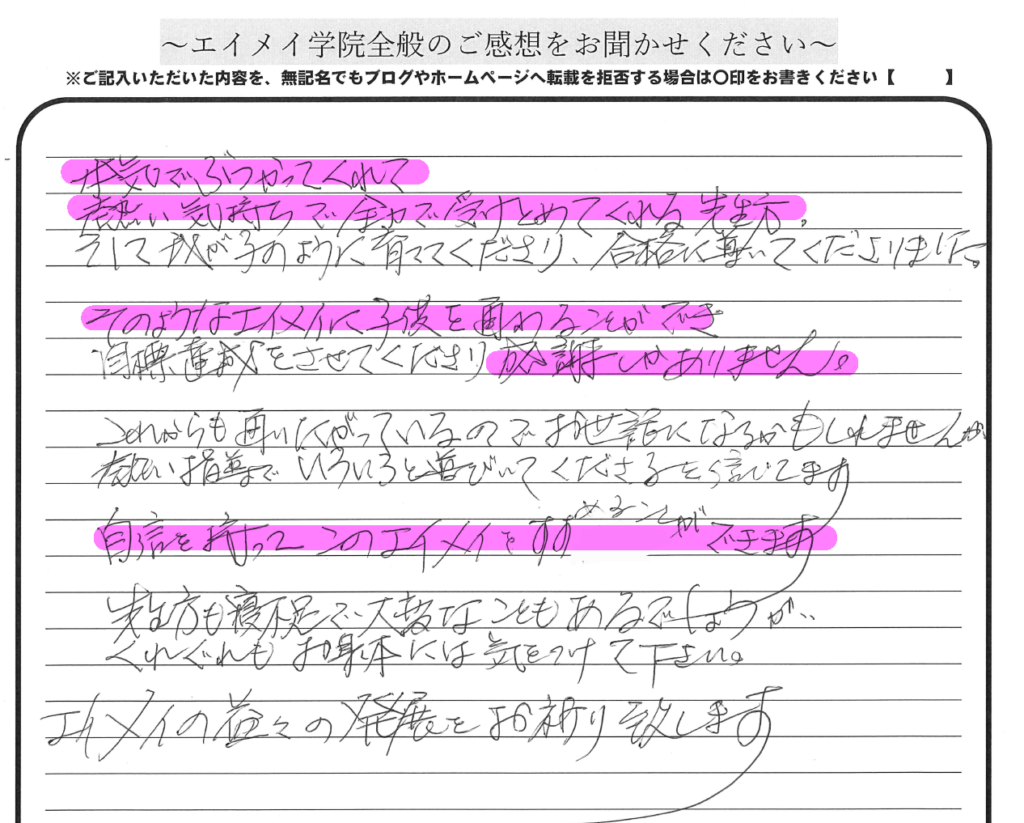 ～エイメイ学院全般のご感想をお聞かせください～
※ご記入いただいた内容を、無記名でもブログやホームページへ転載を拒否する場合は〇印をお書きください【　　】
本気でぶつかってくれて
熱い気持ちで全力で受けとめてくれる先生方。
そして我が子のように育ててくださり、合格に導いてくださりました。
そのようなエイメイに子供を通わることができ
目標達成をさせてくださり感謝しかありません。
これからも通いたがっているのでお世話になるかもしれませんが
熱い指導でいろいろと導びいてくださると信じてます
自信を持ってこのエイメイをすすめることができます
先生方も寝不足で大変なこともあるでしょうが…
くれぐれもお身体には気をつけて下さい。
エイメイの益々の発展をお祈り致します